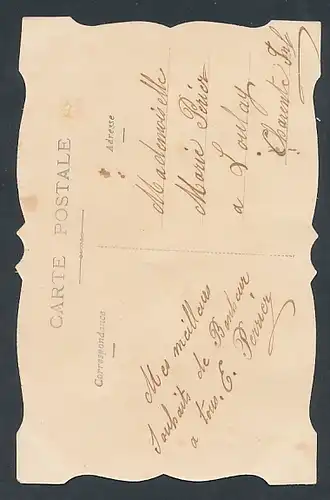 CARTE POSTALE
Correspondance
Adresse
Mes meilleurs
Souhaits de Bonheur
a tous. E. Perrier
Mademoiselle
Marie Perier
a Loulay
Charente Infre